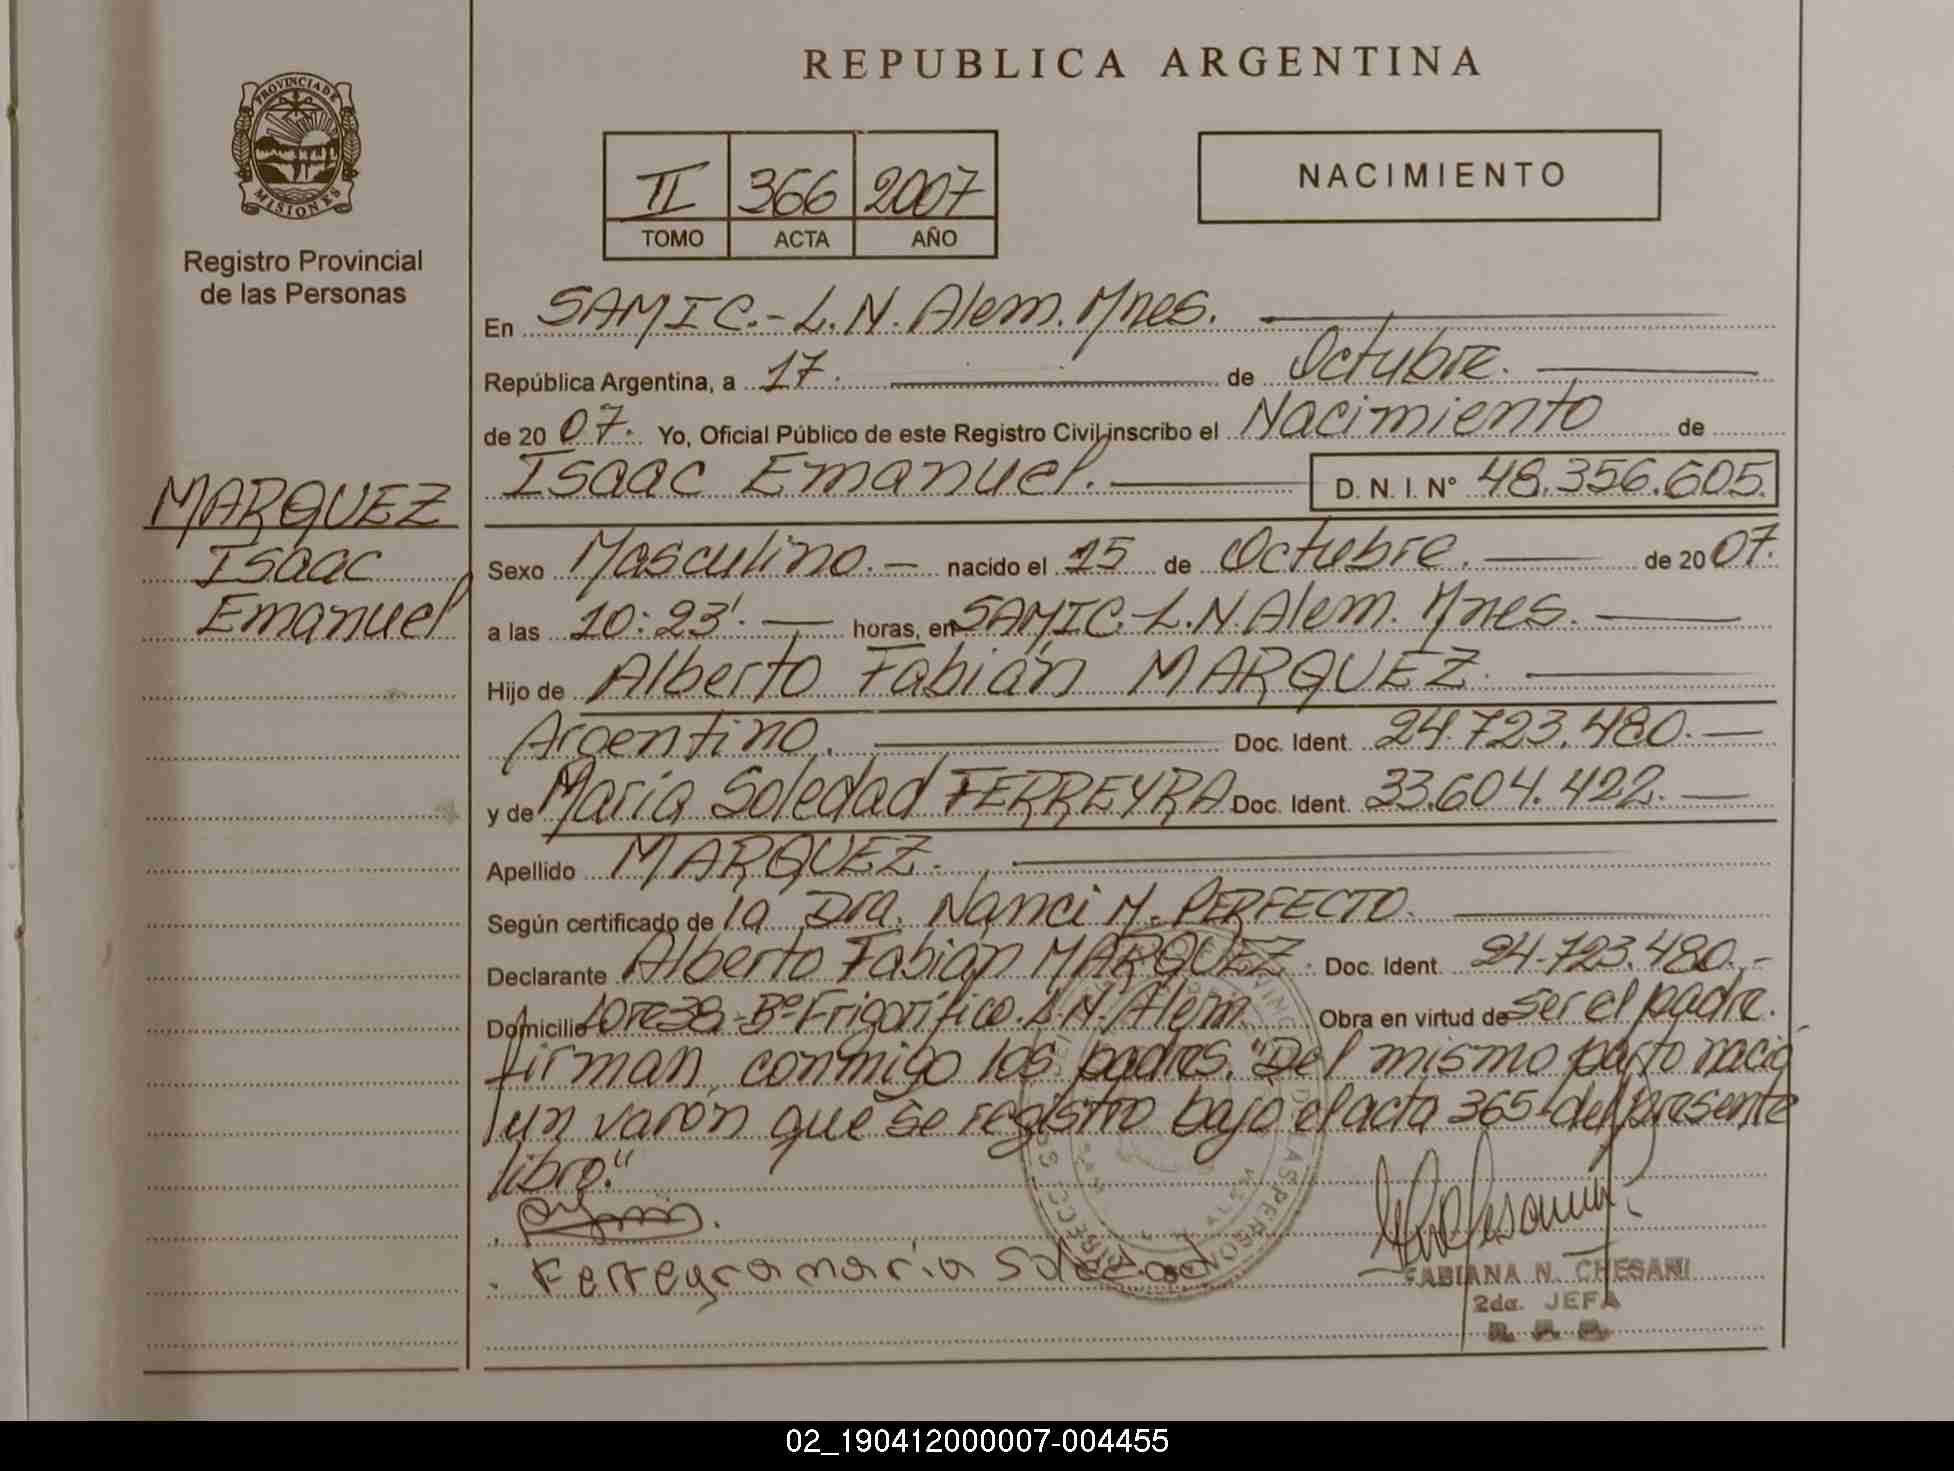 REPUBLICA ARGENTINA
PROVINCIA DE
MISIONES
Registro Provincial
de las Personas
II 366 2007
TOMO ACTA AÑO
NACIMIENTO
En SAMIC.- L.N. Alem. Mnes.
República Argentina, a 17. de Octubre.
de 20 07. Yo, Oficial Público de este Registro Civil inscribo el Nacimiento de
Isaac Emanuel. D. N. I. N° 48.356.605.
MARQUEZ
Isaac
Emanuel
Sexo Masculino. nacido el 15 de Octubre. de 20 07.
a las 10:23'. horas, en SAMIC.-L.N. Alem. Mnes.
Hijo de Alberto Fabián MARQUEZ.
Argentino. Doc. Ident. 24.723.480.
y de María Soledad FERREYRA Doc. Ident. 33.604.422.
Apellido MARQUEZ.
Según certificado de la Dra. Nanci M. PERFECTO.
Declarante Alberto Fabián MARQUEZ. Doc. Ident. 24.723.480.-
Domicilio Lote 38-Bº Frigorífico. L.N. Alem. Obra en virtud de ser el padre.
firman conmigo los padres. "Del mismo parto nació
un varón que se registro bajo el acta 365 del presente
libro."
Ferreyra maria Soledad
FABIANA N. CHESANI
2da. JEFA
02_190412000007-004455